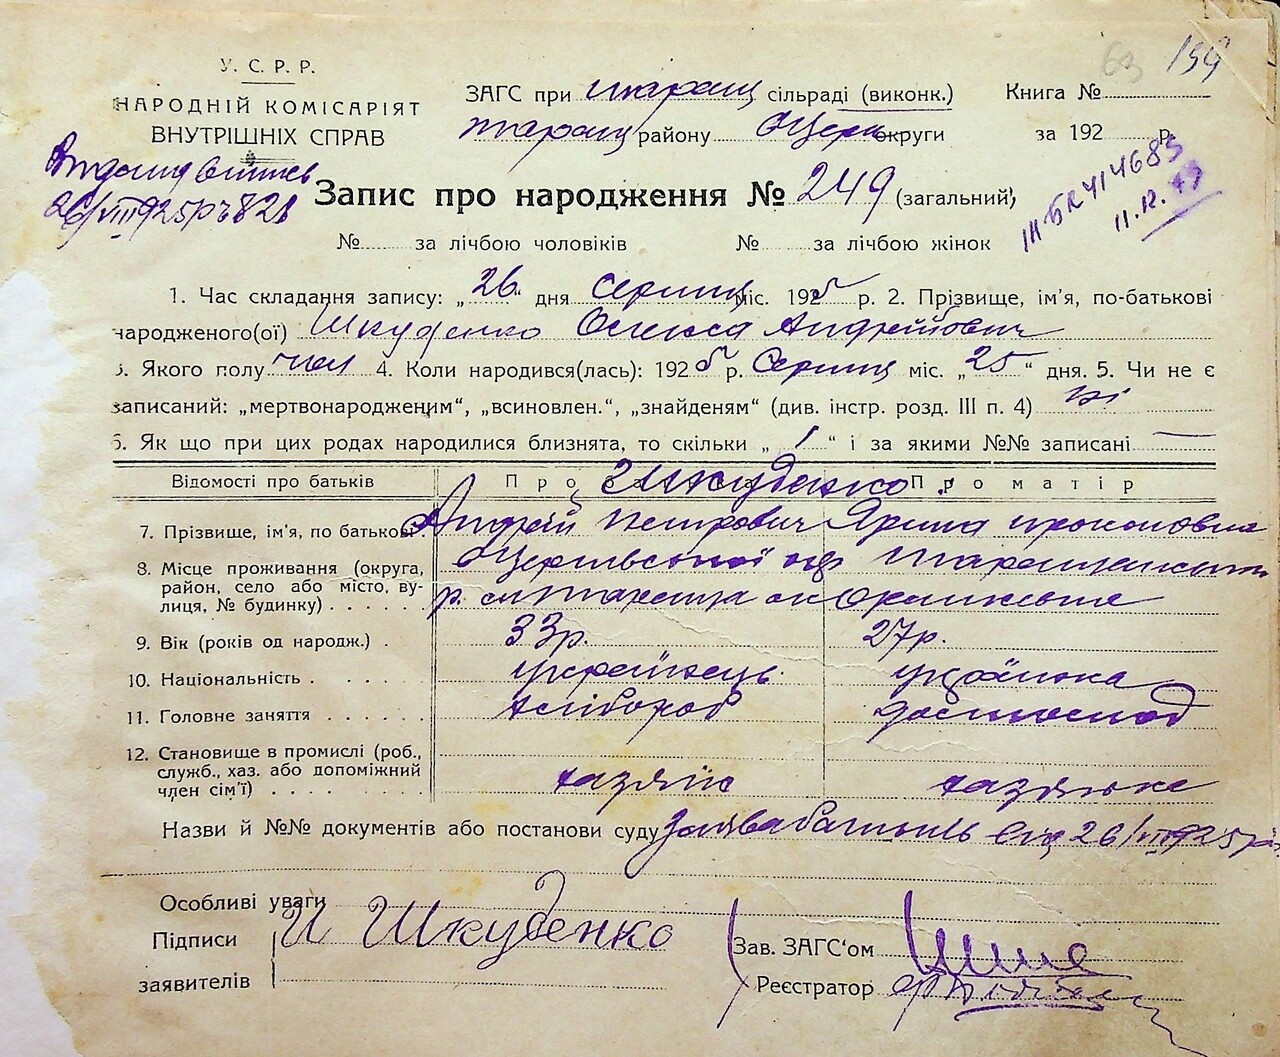 63 159
У. С. Р. Р.
НАРОДНІЙ КОМІСАРІЯТ
ВНУТРІШНІХ СПРАВ
ЗАГС при таращ сільраді (виконк.)
таращ району БЦерк округи
Книга №
за 192 р.
26/VIII 925р № 828
Запис про народження № 249 (загальний)
ІІІ-БК 414683
11.12.79
№ за лічбою чоловіків № за лічбою жінок
1. Час складання запису: „26“ дня Серпня міс. 1925 р. 2. Прізвище, ім'я, по-батькові
народженого(ої) Шкуденко Олекса Андрійович
3. Якого полу чол 4. Коли народився(лась): 1925 р. Серпня міс. „25“ дня. 5. Чи не є
записаний: „мертвонародженим“, „всиновлен.“, „знайденям“ (див. інстр. розд. III п. 4) ні
6. Як що при цих родах народилися близнята, то скільки „1“ і за якими №№ записані —
Відомості про батьків Про Про матір
Шкуденко
7. Прізвище, ім'я, по батькові Андрій Петрович Ярина Прокоповна
8. Місце проживання (округа, район, село або місто, вулиця, № будинку) БЦерківської окр Таращанськ
р. м Тараща
9. Вік (років од народж.) 33р. 27р.
10. Національність українець українка
11. Головне заняття хлібороб домогоспод
12. Становище в промислі (роб., служб., хаз. або допоміжний член сім'ї) хазяїн хазяйка
Назви й №№ документів або постанови суду Заява батьків від 26/VIII 925р
Особливі уваги
Підписи заявителів И Шкуденко
Зав. ЗАГС‘ом
Реєстратор